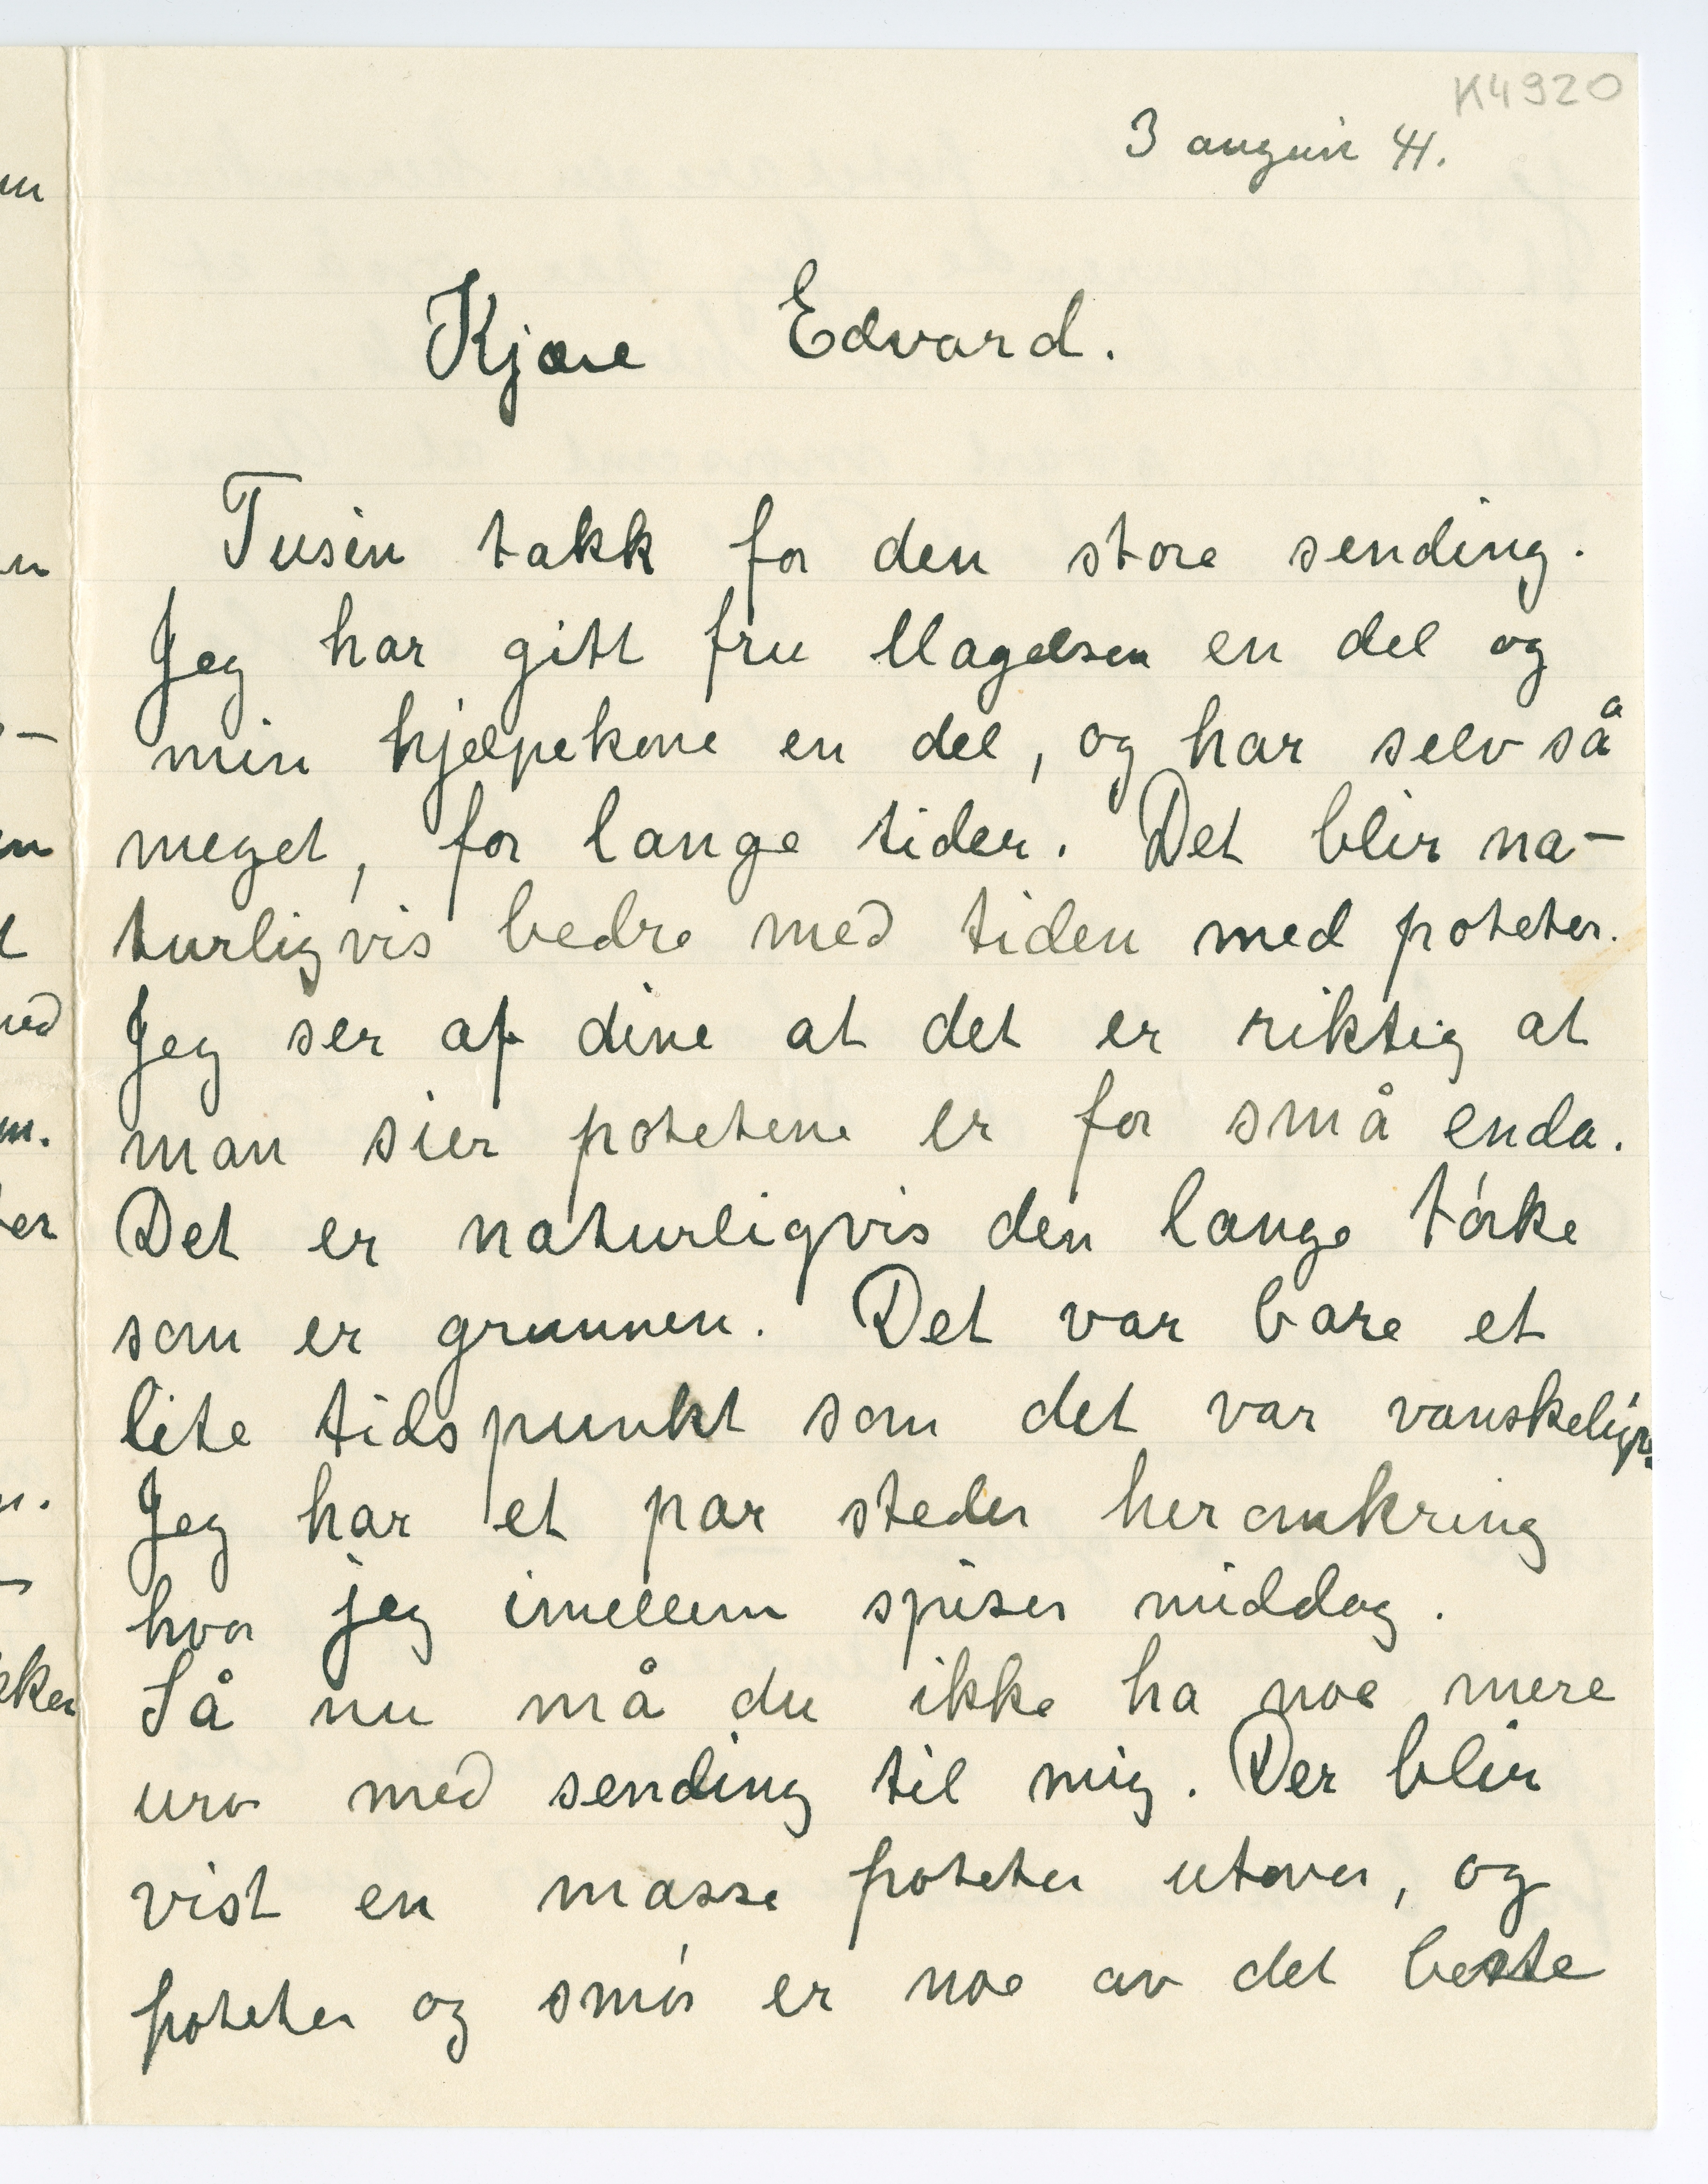 K4920
3 august 41.
Kjære Edvard.
Tusin takk for den store sending.
Jeg har gitt fru Magelsen en del og
min hjelpekone en del, og har selv så
meget, for lange tider. Det blir na-
turligvis bedre med tiden med poteter.
Jeg ser af dine at det er riktig at
man sier potetene er for små enda.
Det er naturligvis den lange tórke
som er grunnen. Det var bare et
lite tidspunkt som det var vanskelig
Jeg har et par steder heromkring
hvor jeg imellem spiser middag.
Så nu må du ikke ha noe mere
uro med sending til mig. Der blir
vist en masse poteter utover, og
poteter og smór er noe av det beste